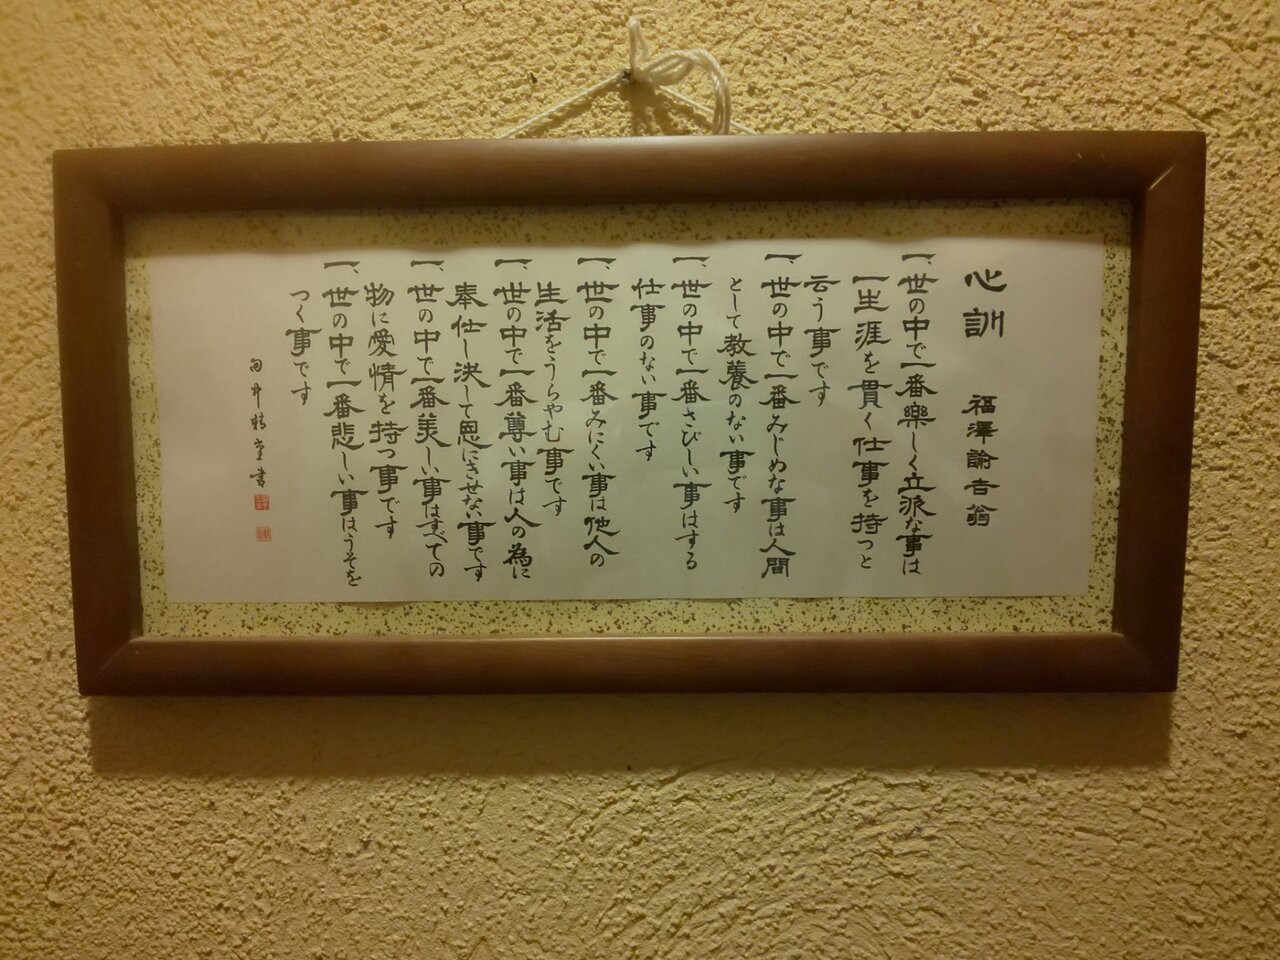 心訓 福澤諭吉翁
一、世の中で一番樂しく立派な事は
一生涯を貫く仕事を持つと
云う事です
一、世の中で一番みじめな事は人間
として教養のない事です
一、世の中で一番さびしい事はする
仕事のない事です
一、世の中で一番みにくい事は他人の
生活をうらやむ事です
一、世の中で一番尊い事は人の為に
奉仕し決して恩にきせない事です
一、世の中で一番美しい事はすべての
物に愛情を持つ事です
一、世の中で一番悲しい事はうそを
つく事です
書